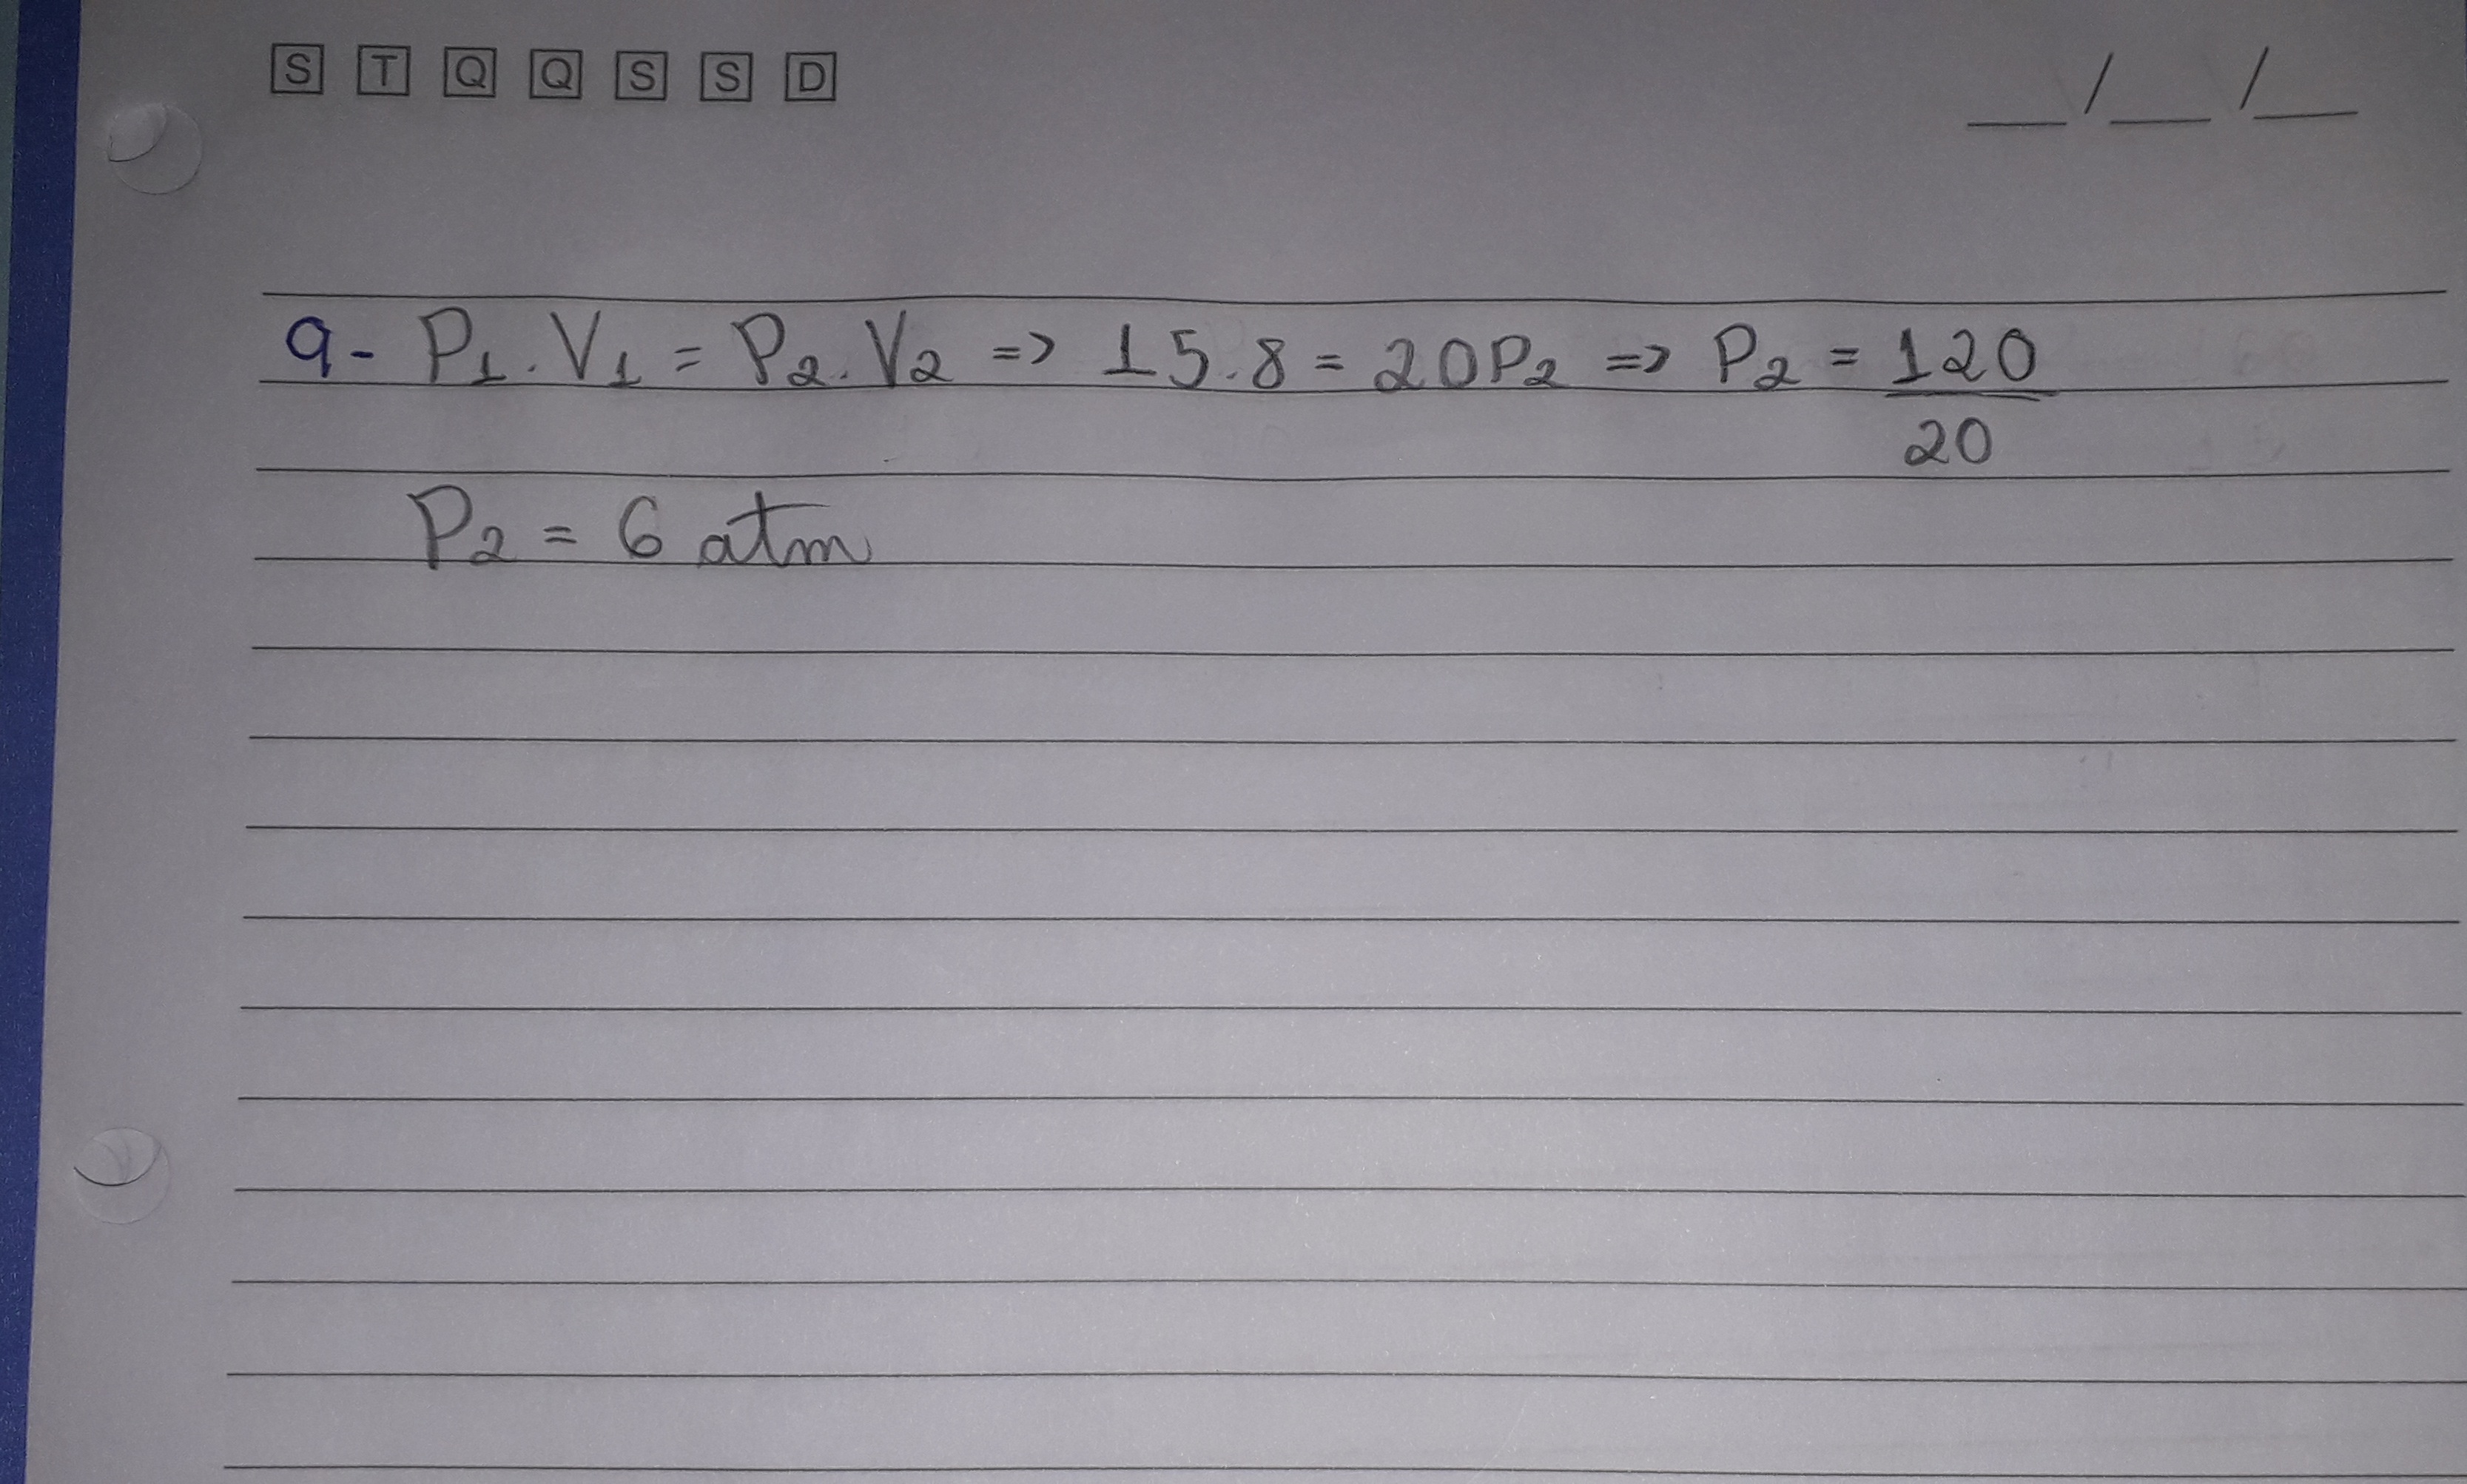 S T Q Q S S D
__/__/__
9- P₁.V₁ = P₂.V₂ => 15.8 = 20P₂ => P₂ = 120
20
P₂ = 6 atm